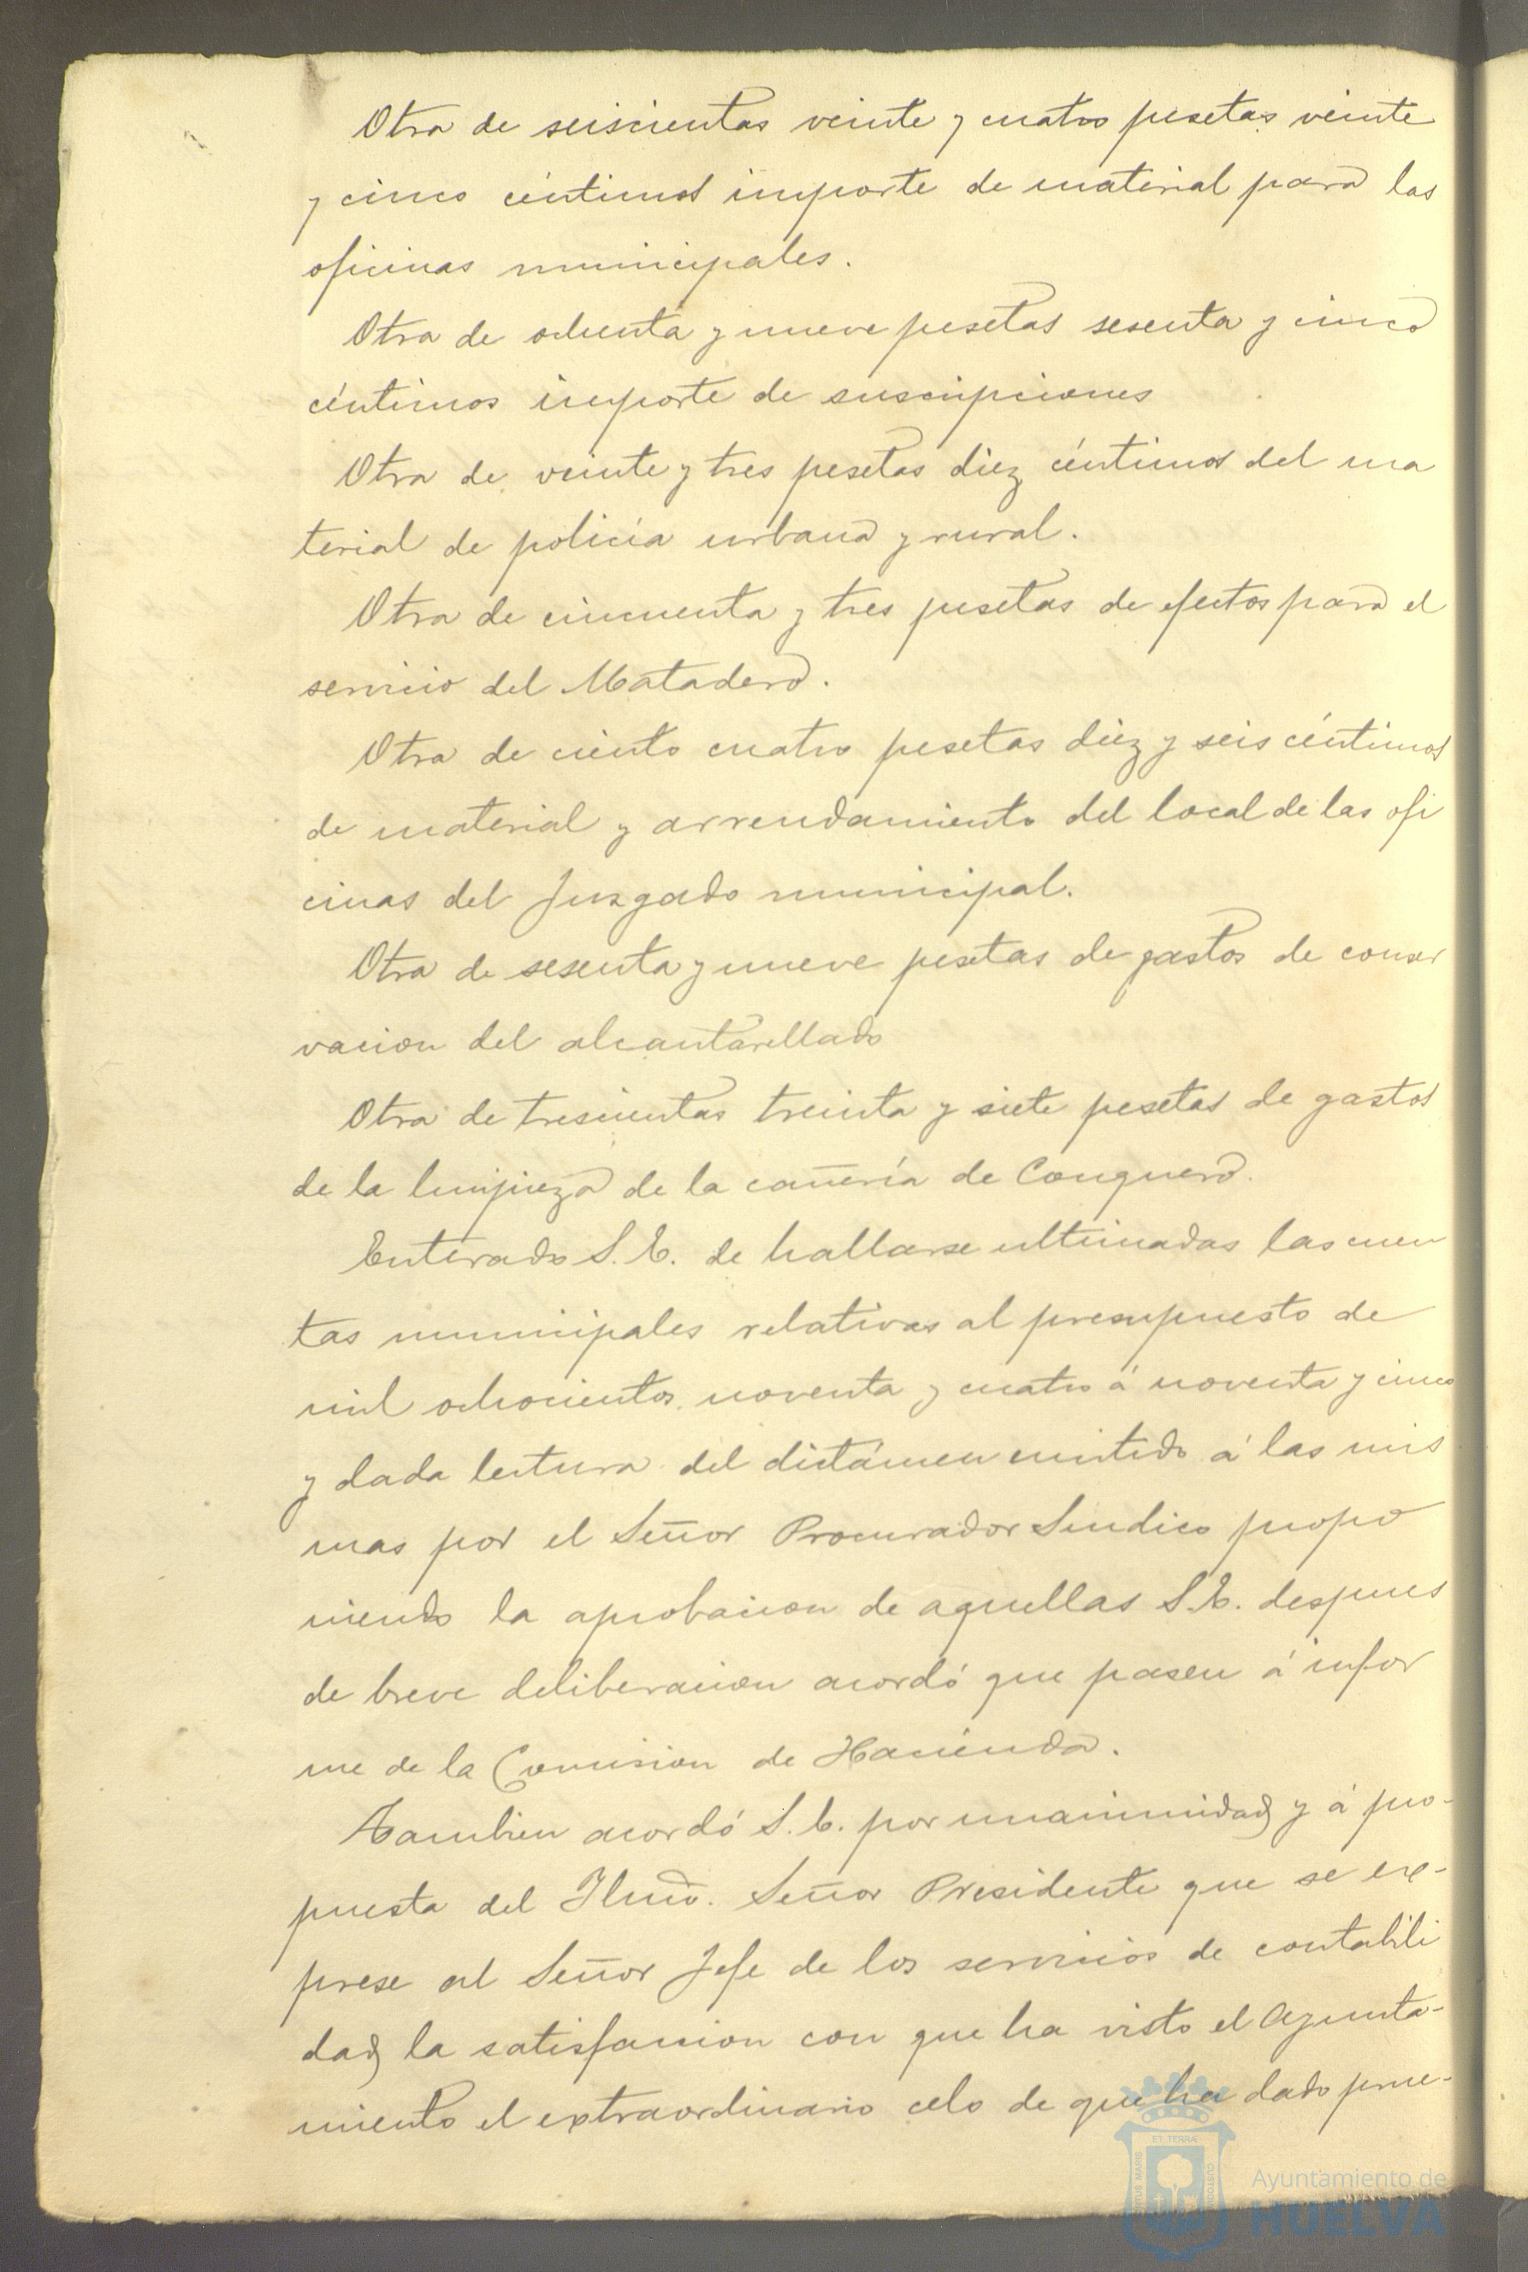 Otra de seiscientas veinte y cuatro pesetas veinte
y cinco céntimos importe de material para las
oficinas municipales.
Otra de ochenta y nueve pesetas sesenta y cinco
céntimos importe de suscripciones
Otra de veinte y tres pesetas diez céntimos del ma
terial de policía urbana y rural.
Otra de cincuenta y tres pesetas de efectos para el
servicio del Matadero.
Otra de ciento cuatro pesetas diez y seis céntimos
de material y arrendamiento del local de las ofi
cinas del Juzgado municipal.
Otra de sesenta y nueve pesetas de gastos de conser
vacion del alcantarellado
Otra de trescientas treinta y siete pesetas de gastos
de la limpieza de la cañería de Conquero.
Enterado S.E. de hallarse ultimadas las cuen
tas municipales relativas al presupuesto de
mil ochocientos noventa y cuatro á noventa y cinco
y dada lectura del dictámen emitido á las mis
mas por el Señor Procurador Sindico propo
niendo la aprobacion de aquellas S.E. despues
de breve deliberacion acordó que pasen á infor
me de la Comision de Hacienda.
Tambien acordó S.E. por unanimidad y á pro-
puesta del Ilmo. Señor Presidente que se ex-
prese al Señor Jefe de los servicios de contabili
dad la satisfaccion con que ha visto el Ayunta-
miento el extraordinario celo de que ha dado prue-
ET TERRÆ
PORTUS MARIS
CUSTODIA
Ayuntamiento de
HUELVA